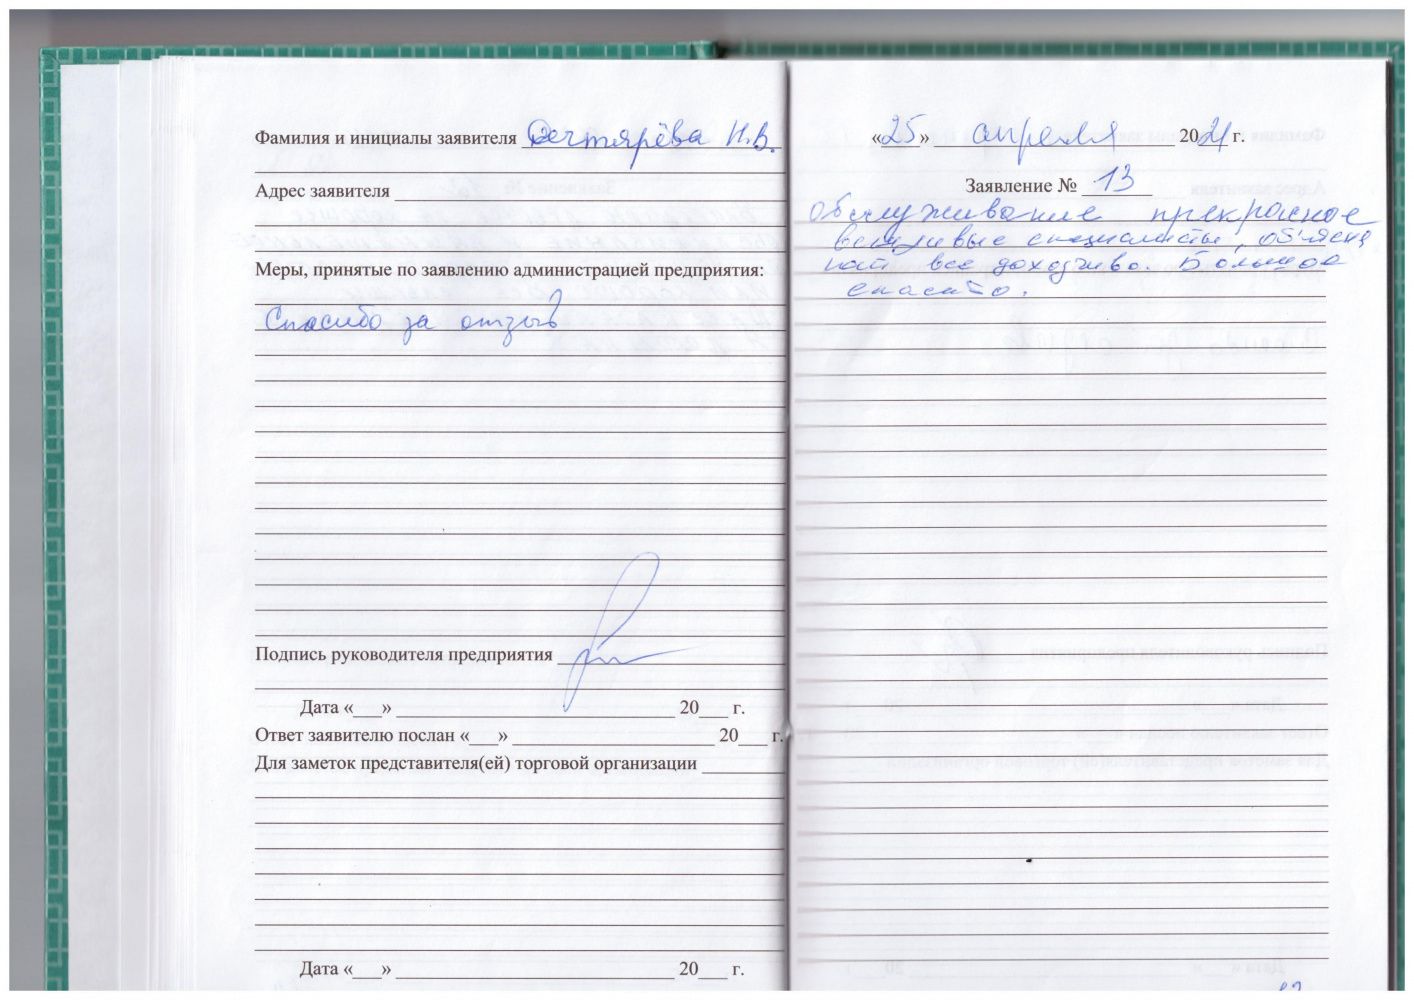 Фамилия и инициалы заявителя Дегтярёва Н.В.
Адрес заявителя
Меры, принятые по заявлению администрацией предприятия:
Спасибо за отзыв
Подпись руководителя предприятия
Дата «___» ___ 20___ г.
Ответ заявителю послан «___» ___ 20___ г.
Для заметок представителя(ей) торговой организации
Дата «___» ___ 20___ г.
«25» апреля 2021 г.
Заявление № 13
Обслуживание прекрасное
вежливые специалисты, объясня
ют все доходчиво. Большое
спасибо.